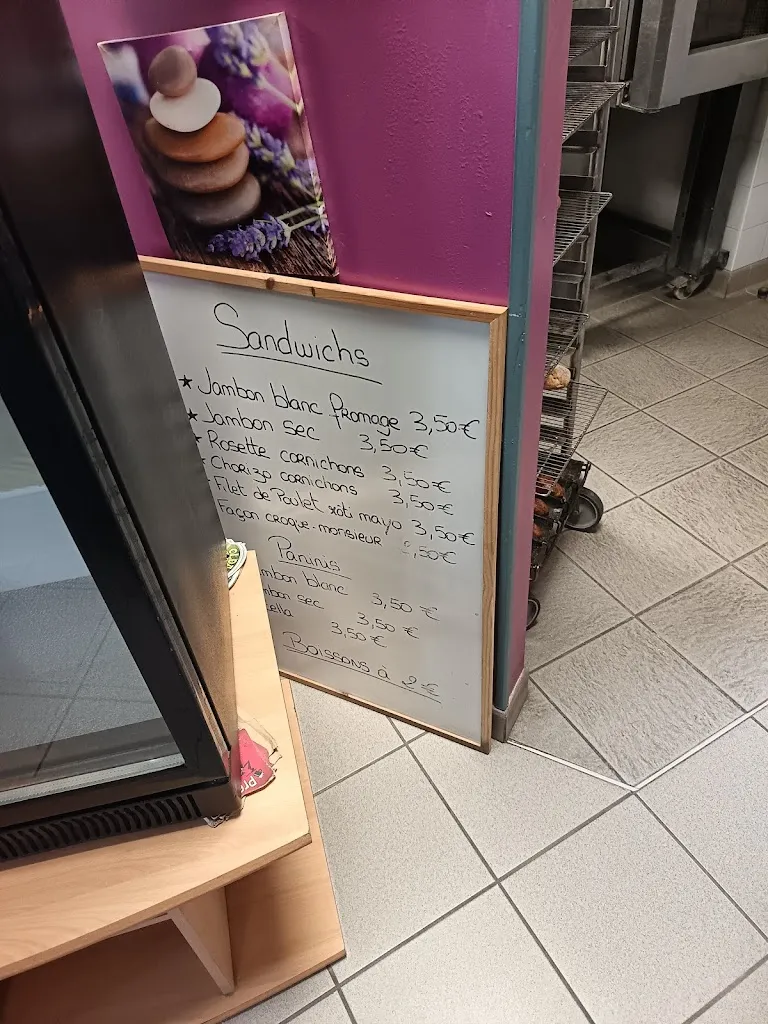 Sandwichs
★ Jambon blanc fromage 3,50€
★ Jambon sec 3,50€
★ Rosette cornichons 3,50€
Chorizo cornichons 3,50€
Filet de Poulet rôti mayo 3,50€
Façon croque-monsieur ,50€
Paninis
mbon blanc 3,50€
bon sec 3,50€
ella 3,50€
Boissons à 2€